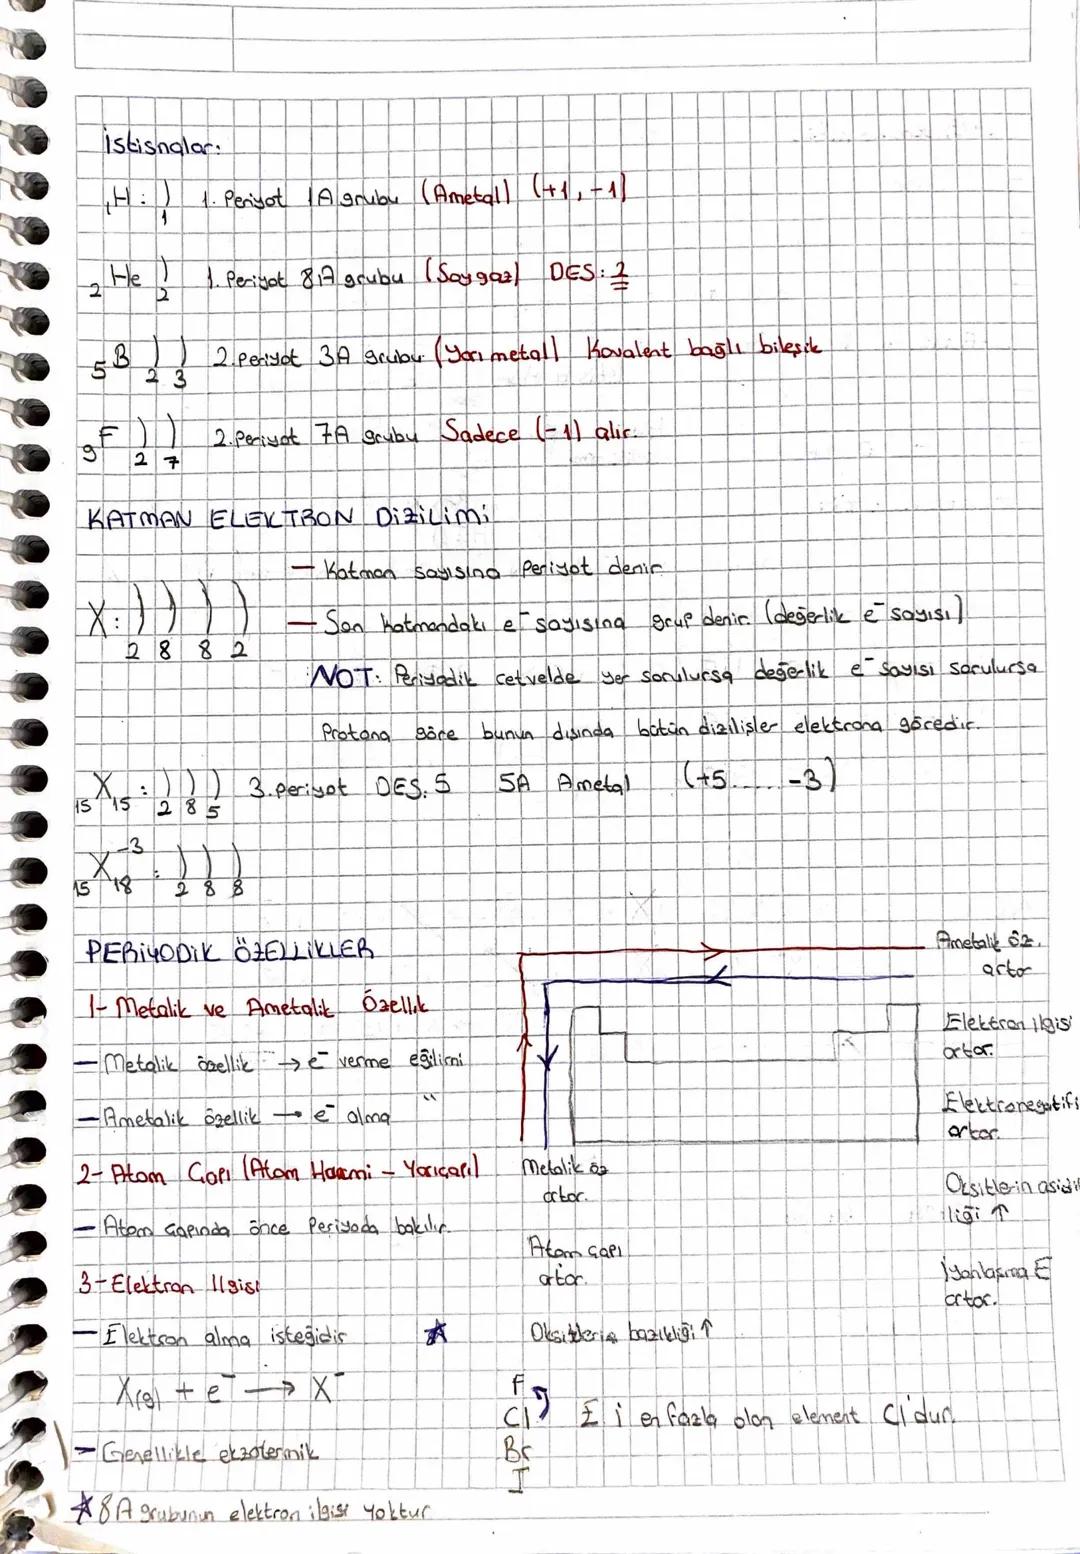 İstisnalar:
₁H: ) 1. Periyot 1A grubu (Ametal) (+1, -1)
1
₂He ) 1. Periyot 8A grubu (Soygaz) DES: 2
2
₅B ) ) 2. Periyot 3A grubu (Yarı metal) Kovalent bağlı bileşik
2 3
₉F ) ) 2. Periyot 7A grubu Sadece (-1) alır.
2 7
KATMAN ELEKTRON DİZİLİMİ
— Katman sayısına Periyot denir
X: ) ) ) ) — Son katmandaki e⁻ sayısına grup denir (değerlik e⁻ sayısı)
2 8 8 2
NOT: Periyodik cetvelde yer sorulursa değerlik e⁻ sayısı sorulursa
Protona göre bunun dışında bütün dizilişler elektrona göredir.
₁₅X₁₅: ) ) ) 3. periyot DES: 5 5A Ametal (+5......-3)
2 8 5
₁₅X₁₈⁻³: ) ) )
2 8 8
PERİYODİK ÖZELLİKLER
1- Metalik ve Ametalik Özellik
— Metalik özellik → e⁻ verme eğilimi
— Ametalik özellik → e⁻ alma "
2- Atom Çapı (Atom Hacmi - Yarıçapı)
— Atom çapında önce Periyoda bakılır.
3- Elektron Ilgisi
— Elektron alma isteğidir
X(g) + e⁻ → X⁻
— Genellikle ekzotermik
★ 8A grubunun elektron ilgisi yoktur
Ametalik öz.
artar
Elektron ilgisi
artar.
Elektronegatifs
artar.
Oksitlerin asidi
liği ↑
İyonlaşma E
artar.
Metalik öz
artar.
Atom çapı
artar.
★ Oksitlerin bazikliği ↑
F
Cl E i en fazla olan element Cl'dur.
Br
I